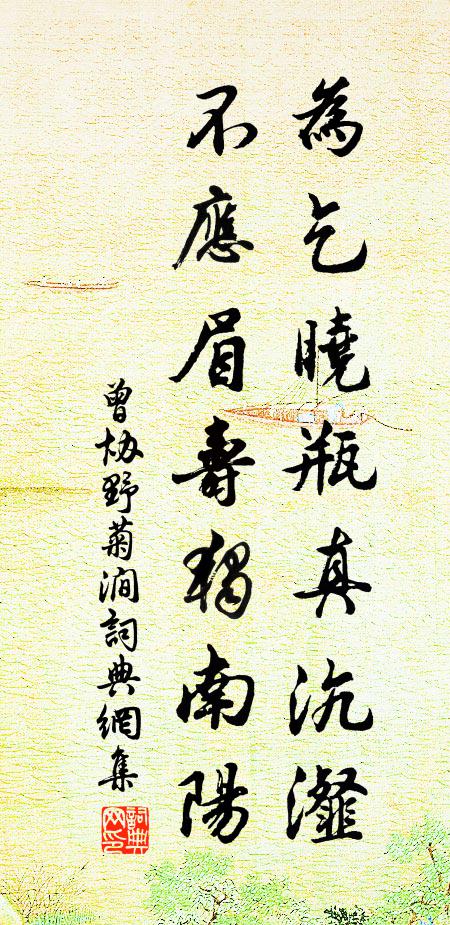 為乞曉瓶真沆瀣
不應眉壽獨南陽
曾協野菊澗詞典網集
詞典網印